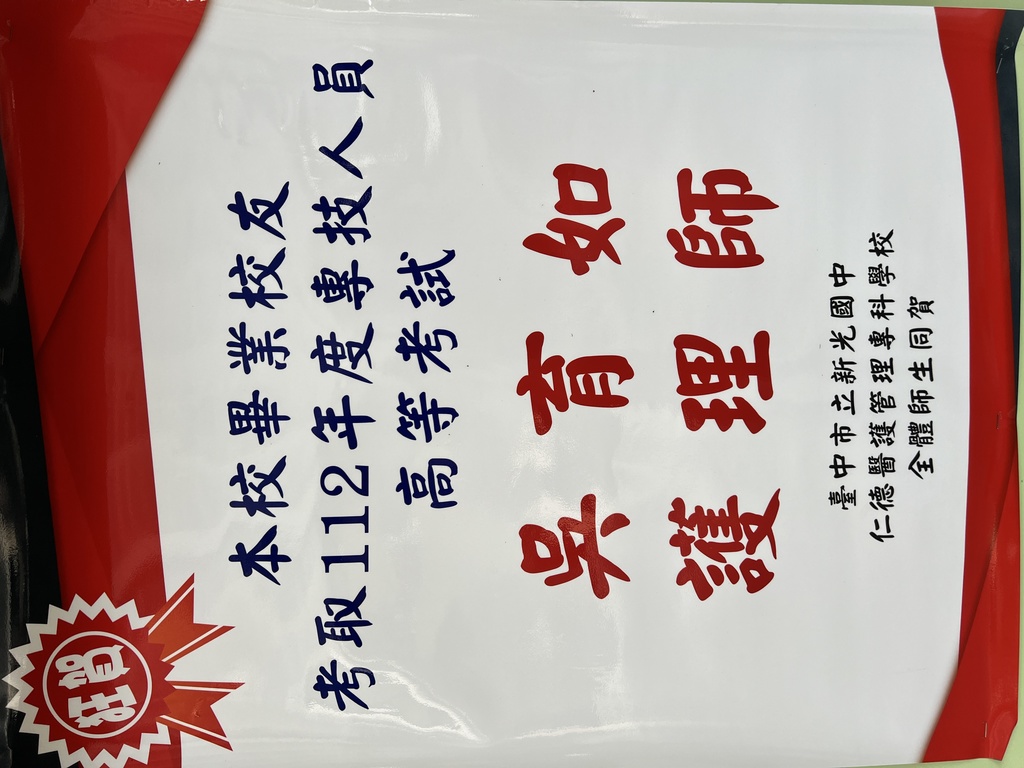 狂賀
本校畢業校友
考取112年度專技人員
高等考試
吳育如
護理師
臺中市立新光國中
仁德醫護管理專科學校
全體師生同賀